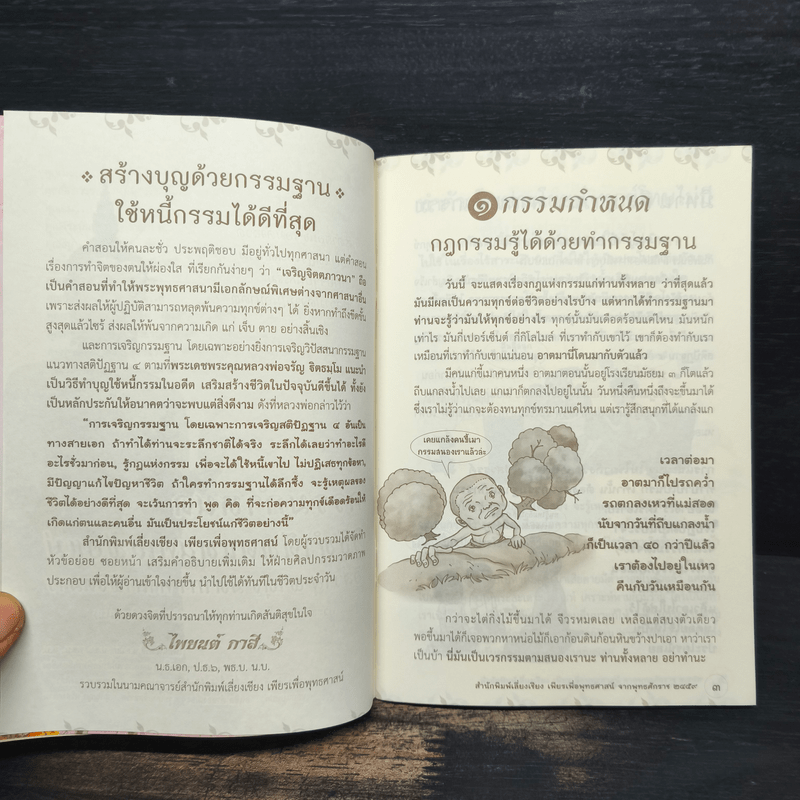 ❖ สร้างบุญด้วยกรรมฐาน ❖
ใช้หนี้กรรมได้ดีที่สุด
คำสอนให้คนละชั่ว ประพฤติชอบ มีอยู่ทั่วไปทุกศาสนา แต่คำสอน
เรื่องการทำจิตของตนให้ผ่องใส ที่เรียกกันง่ายๆ ว่า "เจริญจิตตภาวนา" ถือ
เป็นคำสอนที่ทำให้พระพุทธศาสนามีเอกลักษณ์พิเศษต่างจากศาสนาอื่น
เพราะส่งผลให้ผู้ปฏิบัติสามารถหลุดพ้นความทุกข์ต่างๆ ได้ ยิ่งหากทำถึงขีดขั้น
สูงสุดแล้วไซร้ ส่งผลให้พ้นจากความเกิด แก่ เจ็บ ตาย อย่างสิ้นเชิง
และการเจริญกรรมฐาน โดยเฉพาะอย่างยิ่งการเจริญวิปัสสนากรรมฐาน
แนวทางสติปัฏฐาน ๔ ตามที่พระเดชพระคุณหลวงพ่อจรัญ ฐิตธมฺโม แนะนำ
เป็นวิธีทำบุญใช้หนี้กรรมในอดีต เสริมสร้างชีวิตในปัจจุบันดีขึ้นได้ ทั้งยัง
เป็นหลักประกันให้อนาคตว่าจะพบแต่สิ่งดีงาม ดังที่หลวงพ่อกล่าวไว้ว่า
"การเจริญกรรมฐาน โดยเฉพาะการเจริญสติปัฏฐาน ๔ อันเป็น
ทางสายเอก ถ้าทำได้ท่านจะระลึกชาติได้จริง ระลึกได้เลยว่าทำอะไรดี
อะไรชั่วมาก่อน, รู้กฎแห่งกรรม เพื่อจะได้ใช้หนี้เขาไป ไม่ปฏิเสธทุกข้อหา,
มีปัญญาแก้ไขปัญหาชีวิต ถ้าใครทำกรรมฐานได้ลึกซึ้ง จะรู้เหตุผลของ
ชีวิตได้อย่างดีที่สุด จะเว้นการทำ พูด คิด ที่จะก่อความทุกข์เดือดร้อนให้
เกิดแก่ตนและคนอื่น มันเป็นประโยชน์แก่ชีวิตอย่างนี้"
สำนักพิมพ์เลี่ยงเชียง เพียรเพื่อพุทธศาสน์ โดยผู้รวบรวมได้จัดทำ
หัวข้อย่อย ซอยหน้า เสริมคำอธิบายเพิ่มเติม ให้ฝ่ายศิลปกรรมวาดภาพ
ประกอบ เพื่อให้ผู้อ่านเข้าใจง่ายขึ้น นำไปใช้ได้ทันทีในชีวิตประจำวัน
ด้วยดวงจิตที่ปรารถนาให้ทุกท่านเกิดสันติสุขในใจ
ไพยนต์ กาสี
น.ธ.เอก, ป.ธ.๖, พธ.บ. น.บ.
รวบรวมในนามคณาจารย์สำนักพิมพ์เลี่ยงเชียง เพียรเพื่อพุทธศาสน์
๑ กรรมกำหนด
กฎกรรมรู้ได้ด้วยทำกรรมฐาน
วันนี้ จะแสดงเรื่องกฎแห่งกรรมแก่ท่านทั้งหลาย ว่าที่สุดแล้ว
มันมีผลเป็นความทุกข์ต่อชีวิตอย่างไรบ้าง แต่หากได้ทำกรรมฐานมา
ท่านจะรู้ว่ามันให้ทุกข์อย่างไร ทุกข์นั้นมันเดือดร้อนแค่ไหน มันหนัก
เท่าไร มันกี่เปอร์เซ็นต์ กี่กิโลไมล์ ที่เราทำกับเขาไว้ เขาก็ต้องทำกับเรา
เหมือนที่เราทำกับเขาแน่นอน อาตมานี่โดนมากับตัวแล้ว
มีคนแก่ขี้เมาคนหนึ่ง อาตมาตอนนั้นอยู่โรงเรียนมัธยม ๓ ก็โดแล้ว
ถีบแกลงน้ำไปเลย แกเมาก็ตกลงไปอยู่ในนั้น วันหนึ่งคืนหนึ่งถึงจะขึ้นมาได้
ซึ่งเราไม่รู้ว่าแกจะต้องทนทุกข์ทรมานแค่ไหน แต่เรารู้สึกสนุกที่ได้แกล้งแก
เคยแกล้งคนขี้เมา
กรรมสนองเราแล้วล่ะ
เวลาต่อมา
อาตมาก็ไปรถคว่ำ
รถตกลงเหวที่แม่สอด
นับจากวันที่ถีบแกลงน้ำ
ก็เป็นเวลา ๔๐ กว่าปีแล้ว
เราต้องไปอยู่ในเหว
คืนกับวันเหมือนกัน
กว่าจะไต่กิ่งไม้ขึ้นมาได้ จีวรหมดเลย เหลือแต่สบงตัวเดียว
พอขึ้นมาได้ก็เจอพวกหาหน่อไม้ก็เอาก้อนดินก้อนหินขว้างปาเอา หาว่าเรา
เป็นบ้า นี่มันเป็นเวรกรรมตามสนองเรานะ ท่านทั้งหลาย อย่าทำนะ
สำนักพิมพ์เลี่ยงเชียง เพียรเพื่อพุทธศาสน์ จากพุทธศักราช ๒๔๕๙ ๓